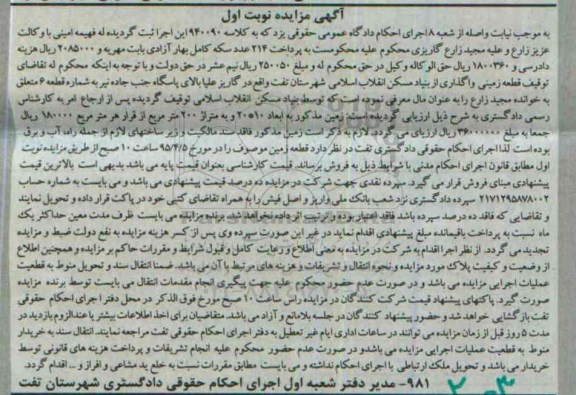 آگهی مزایده نوبت اول
به موجب نیابت واصله از شعبه ۸ اجرای احکام دادگاه عمومی حقوقی یزد که به کلاسه ۹۴۰۰۹۰ این اجرا ثبت گردیده له فهیمه امینی با وکالت
عزیز زارع و علیه مجید زارع گاریزی محکوم علیه محکومست به پرداخت ۲۱۴ عدد سکه کامل بهار آزادی بابت مهریه و ۲۰۸۵۰۰۰ ریال هزینه
دادرسی و ۱۸۰۰۳۶۰ ریال حق الوکاله وکیل در حق محکوم له و مبلغ ۲۵۰۰۵۰ ریال نیم عشر در حق دولت و با توجه به اینکه محکوم له تقاضای
توقیف قطعه زمینی واگذاری از بنیاد مسکن انقلاب اسلامی شهرستان تفت واقع در گاریز علیا بالای پاسگاه جنب جاده تیر به شماره قطعه ۶ متعلق
به خوانده مجید زارع را به عنوان مال معرفی نموده است که توسط بنیاد مسکن انقلاب اسلامی توقیف گردیده پس از ارجاع امر به کارشناس
رسمی دادگستری به شرح ذیل ارزیابی گردیده است: زمین مذکور به ابعاد ۱۰*۲۰ و به متراژ ۲۰۰ متر مربع از قرار هر متر مربع ۱۸۰۰۰۰ ریال
جمعا به مبلغ ۳۶۰۰۰۰۰۰ ریال ارزیابی می گردد. لازم به ذکر است زمین مذکور فاقد سند مالکیت و زیر ساختهای لازم از جمله راه، آب و برق
بوده است لذا اجرای احکام حقوقی دادگستری تفت در نظر دارد قطعه زمین موصوف را در مورخ ۹۵/۴/۵ ساعت ۱۰ صبح از طریق مزایده نوبت
اول مطابق قانون اجرای احکام مدنی با شرایط ذیل به فروش برساند. قیمت کارشناسی بعنوان قیمت پایه می باشد بدیهی است بالاترین قیمت
پیشنهادی مبنای فروش قرار می گیرد. سپرده نقدی جهت شرکت در مزایده ده درصد قیمت پیشنهادی می باشد و می بایست به شماره حساب
۲۱۷۱۲۹۵۸۷۸۰۰۲ سپرده دادگستری نزد شعب بانک ملی واریز و اصل فیش را به همراه تقاضای کتبی خود در پاکت قرار داده و تحویل نمایند
و تقاضایی که فاقد ده درصد سپرده باشد فاقد اعتبار بوده و ترتیب اثر داده نخواهد شد. برنده مزایده می بایست ظرف مدت معین حداکثر یک
ماه نسبت به پرداخت باقیمانده مبلغ پیشنهادی اقدام نماید در غیر این صورت سپرده وی پس از کسر هزینه مزایده به نفع دولت ضبط و مزایده
تجدید می گردد. از نظر اجرا اقدام به شرکت در مزایده به معنی اطلاع و رعایت کامل و قبول شرایط و مقررات حاکم بر مزایده و همچنین اطلاع
از وضعیت و کیفیت پلاک مورد مزایده و نحوه انتقال و تشریفات و هزینه های مرتبط با آن می باشد. ضمنا انتقال سند و تحویل منوط به قطعیت
عملیات اجرایی مزایده می باشد و در صورت عدم حضور محکوم علیه جهت پیگیری انجام مقدمات انتقال می بایست توسط برنده مزایده
صورت گیرد. پاکتهای پیشنهاد قیمت شرکت کنندگان در مزایده راس ساعت ۱۰ صبح مورخ فوق الذکر در محل دفتر اجرای احکام حقوقی
تفت بازگشایی خواهد شد و حضور پیشنهاد کنندگان در جلسه بلامانع و آزاد می باشد. متقاضیان برای اخذ اطلاعات بیشتر یا عندالزوم بازدید در
مدت ۵ روز قبل از زمان مزایده می توانند در ساعات اداری ایام غیر تعطیل به دفتر اجرای احکام حقوقی تفت مراجعه نمایند. انتقال سند به خریدار
منوط به قطعیت عملیات اجرایی مزایده می باشد و در صورت عدم حضور محکوم علیه انجام تشریفات و پرداخت هزینه های قانونی توسط
خریدار می باشد و تحویل ملک ارتباطی با اجرای احکام نداشته و می بایست مطابق مقررات نسبت به خلع ید مشاعی و افراز و ... اقدام گردد.
۹۸۱- مدیر دفتر شعبه اول اجرای احکام حقوقی دادگستری شهرستان تفت